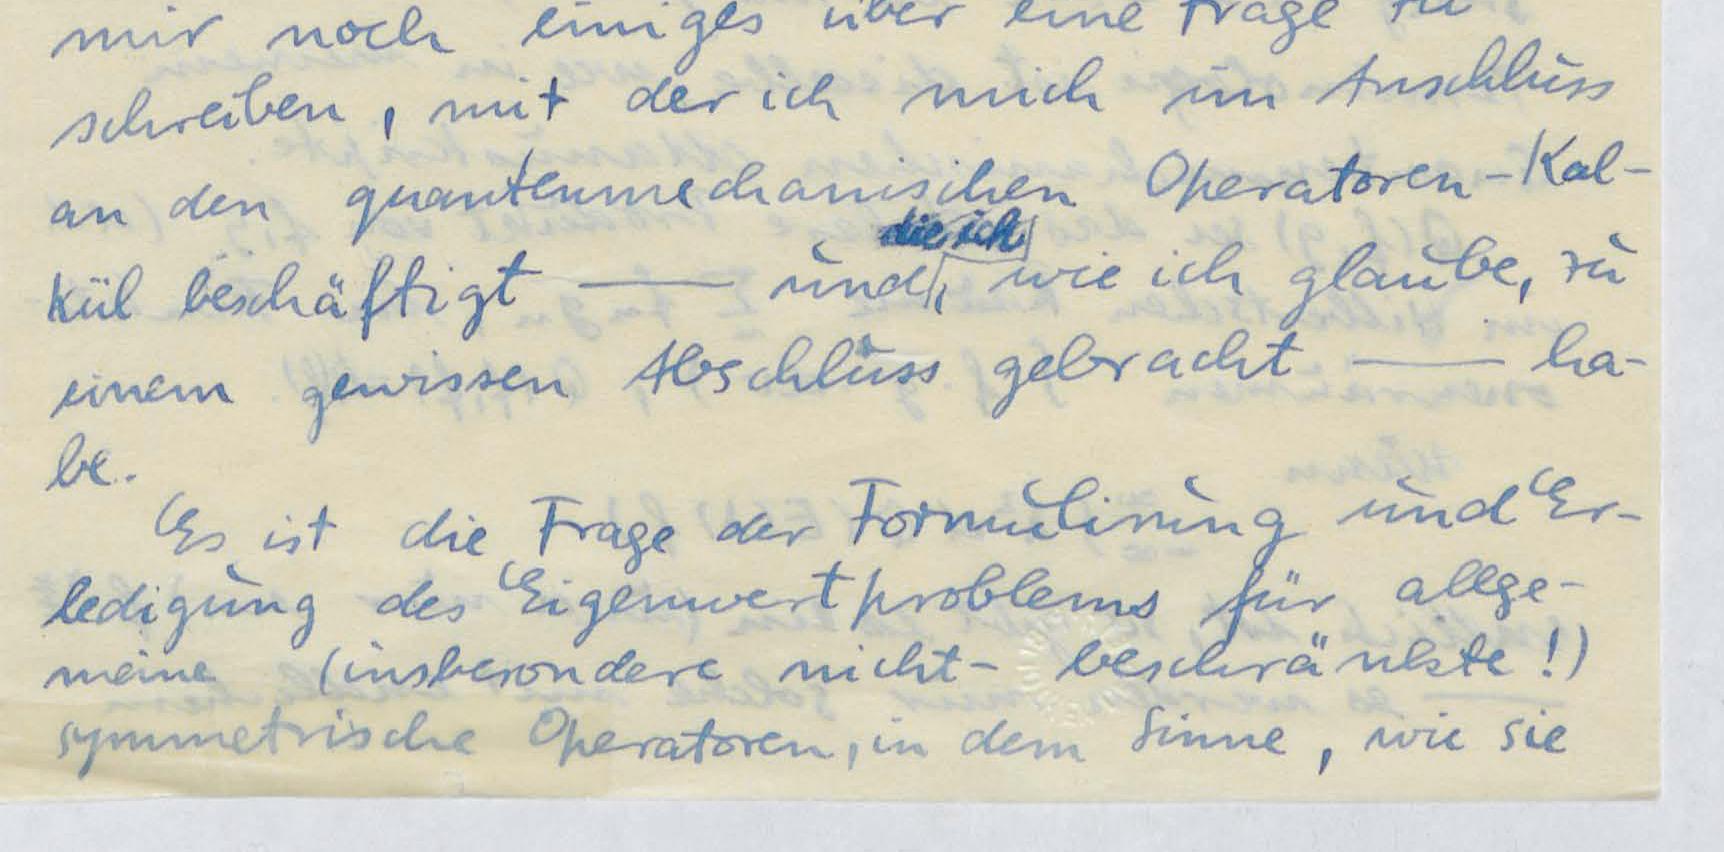 mir noch einiges über eine Frage zu
schreiben, mit der ich mich im Anschluss
an den quantenmechanischen Operatoren-Kal-
die ich
kül beschäftigt — und, wie ich glaube, zu
einem gewissen Abschluss gebracht — ha-
be.
Es ist die Frage der Formulirung und Er-
ledigung des Eigenwertproblems für allge-
meine (insbesondere nicht- beschränkte!)
symmetrische Operatoren, in dem Sinne, wie sie